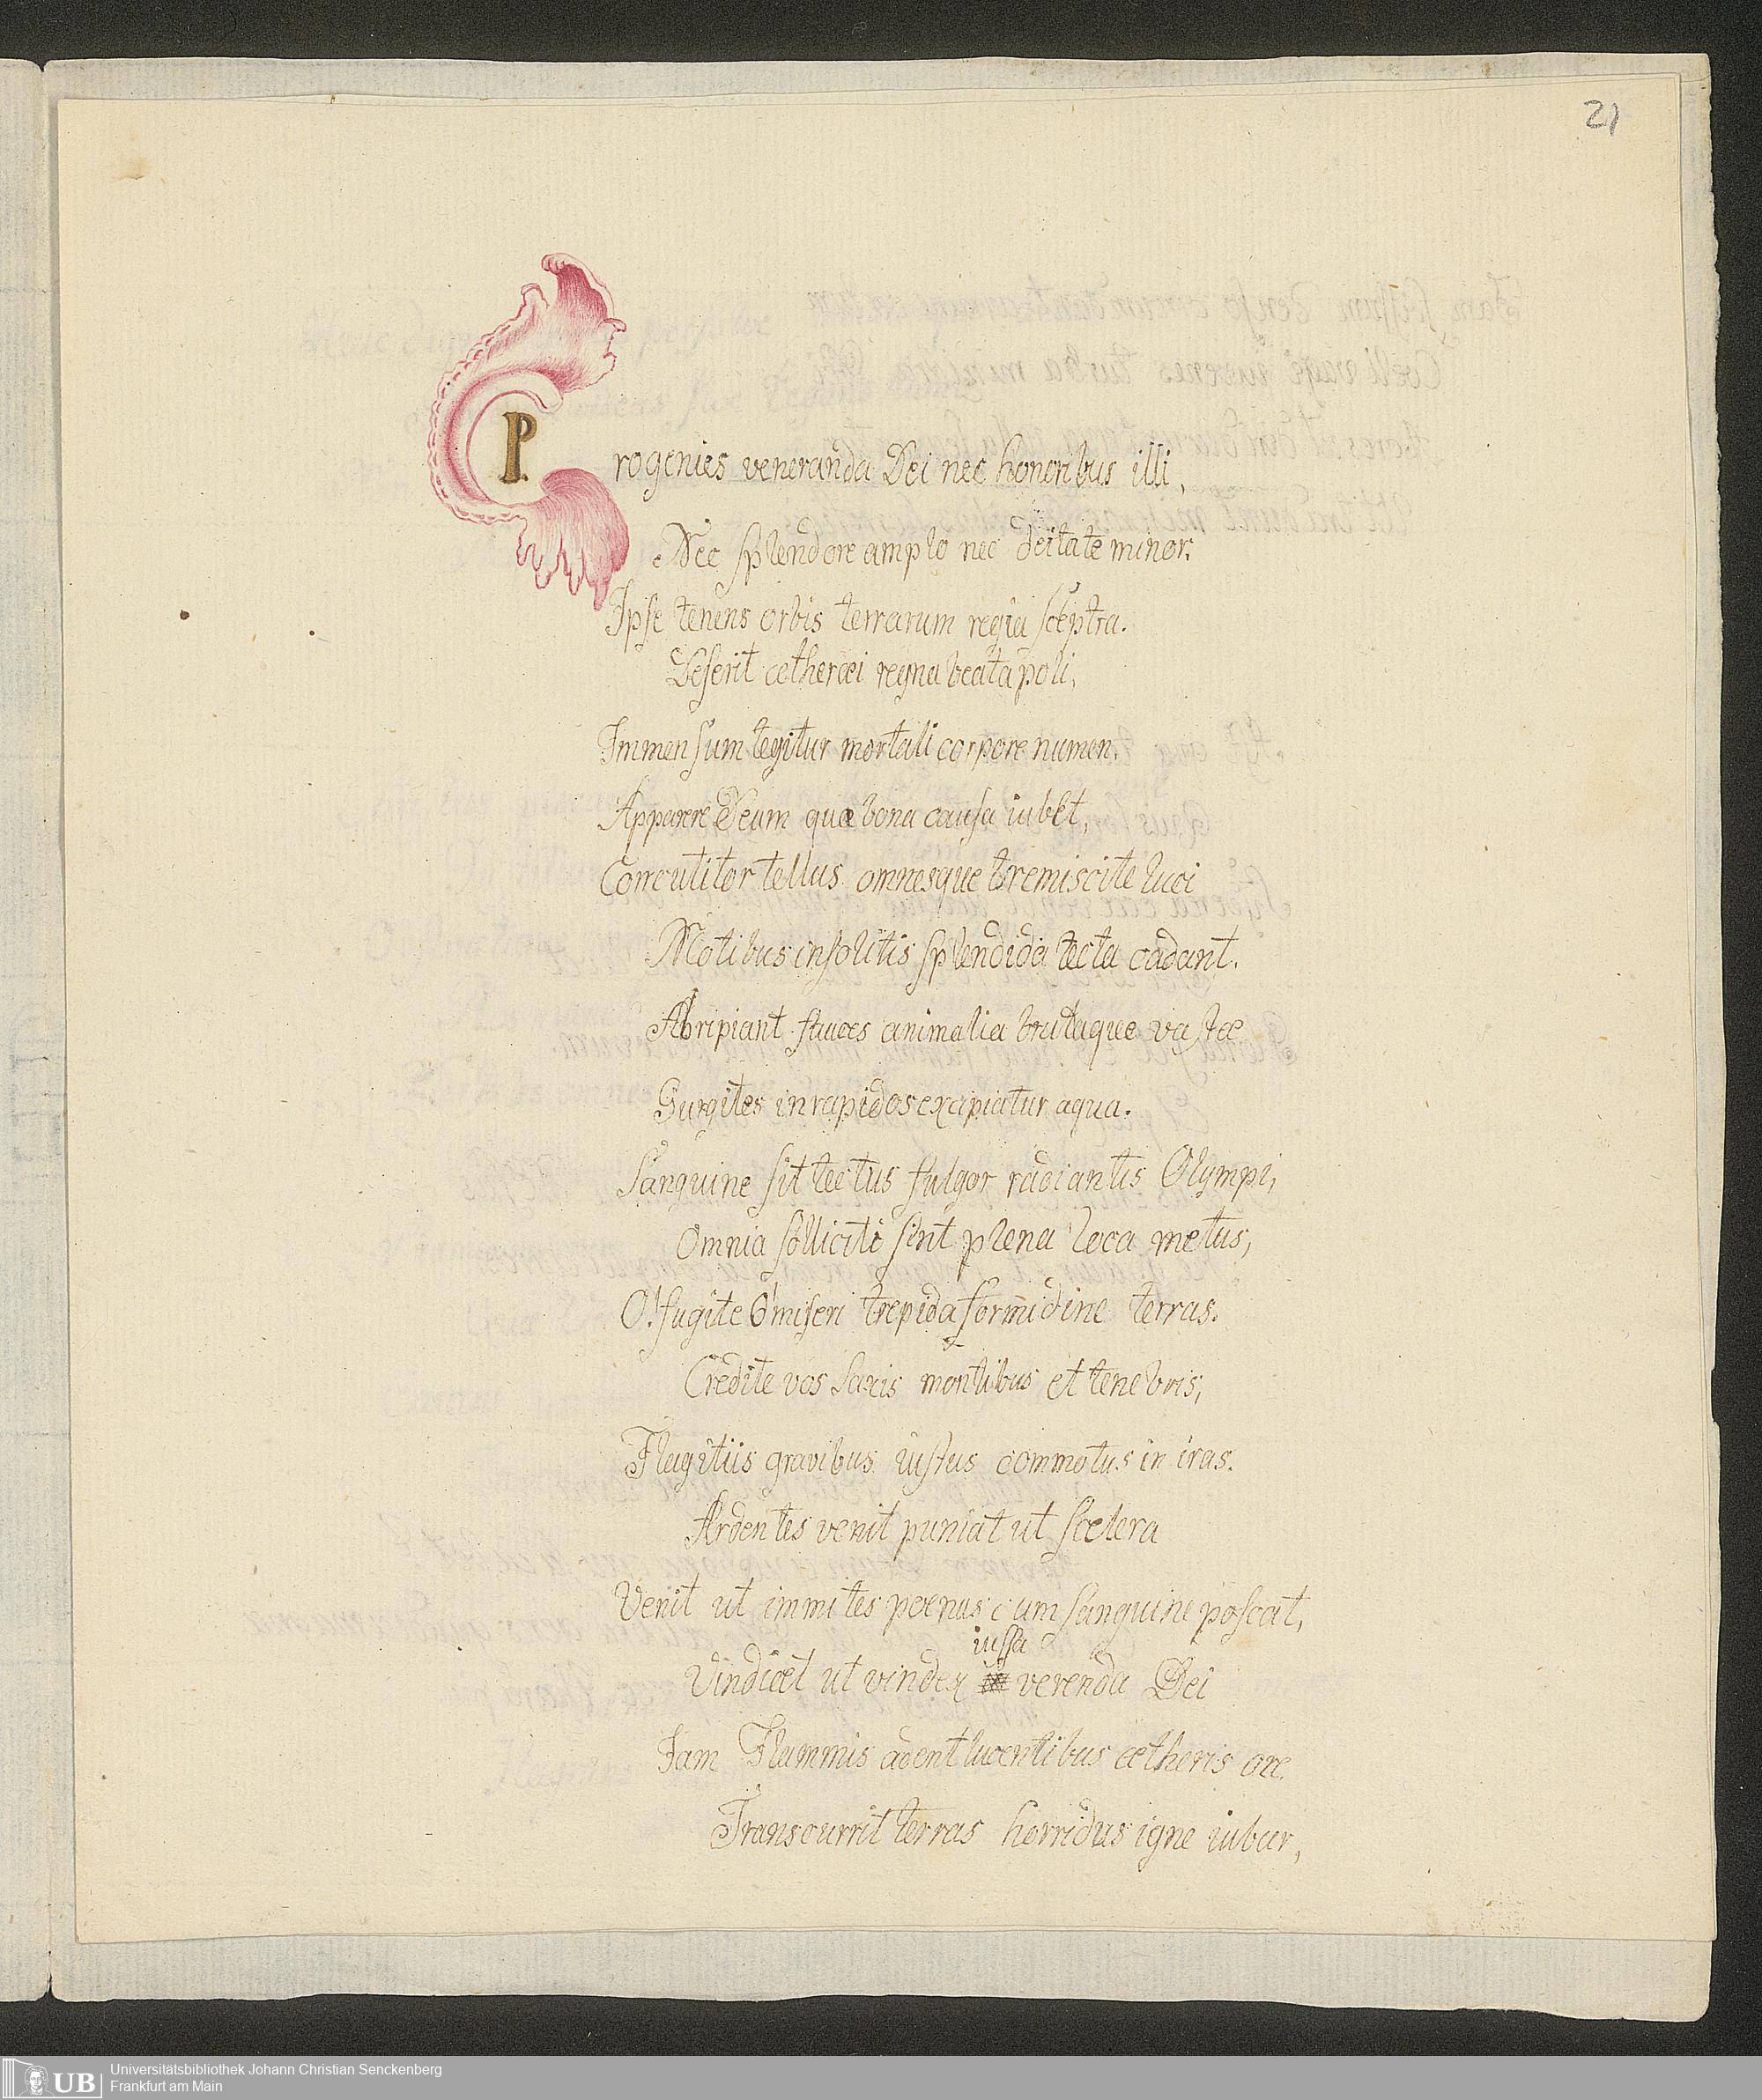 21
Progenies veneranda Dei nec honoribus illi,
Nec splendore amplo nec deitate minor:
Ipse tenens orbis terrarum regia sceptra.
Deserit aetheraei regna beata poli,
Immensum tegitur mortali corpore numen.
Apparere Deum quae bona causa iubet,
Concutitor tellus omnesque tremiscite luci
Motibus insolitis splendida tecta cadant.
Abripiant fauces animalia brutaque vastae
Gurgites in rapidos excipiatur aqua.
Sanguine sit tectus fulgor radiantis Olympi,
Omnia solliciti sint plena loca metus,
O! fugite o! miseri trepida formidine terras.
Credite vos saxis montibus et tenebris,
Flagitiis gravibus iustus commotus in iras.
Ardentes venit puniat ut scelera
Venit ut immites poenas cum sanguine poscat,
iussa
Vindicet ut vindex verenda Dei
Iam Flammis adent lucentibus aetheris orae
Transcurrit terras horridus igne iubar,
UB Universitätsbibliothek Johann Christian Senckenberg
Frankfurt am Main